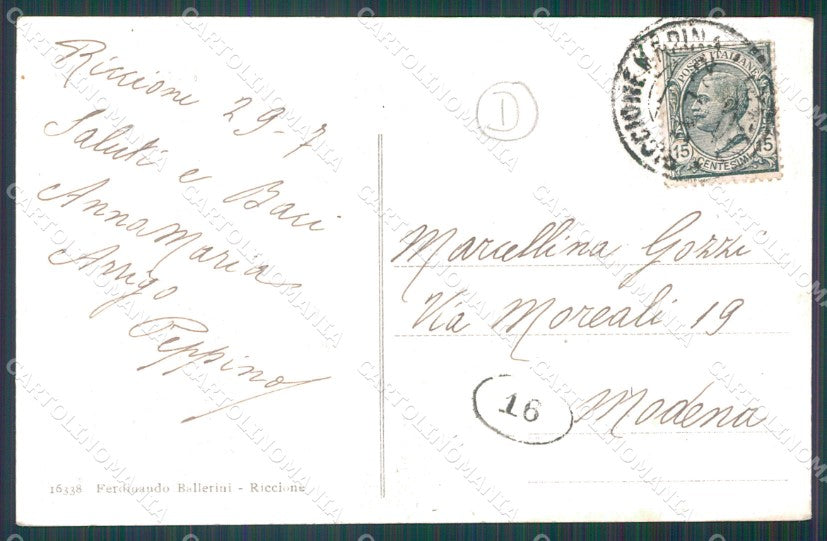 Riccione 29-7
Saluti e Baci
Anna Maria
Arrigo
Peppino
16338 Ferdinando Ballerini - Riccione
1
RICCIONE MARINA
POSTE ITALIANE
15 CENTESIMI 15
Marcellina Gozzi
Via Moreali 19
16
Modena
CARTOLINOMANIA